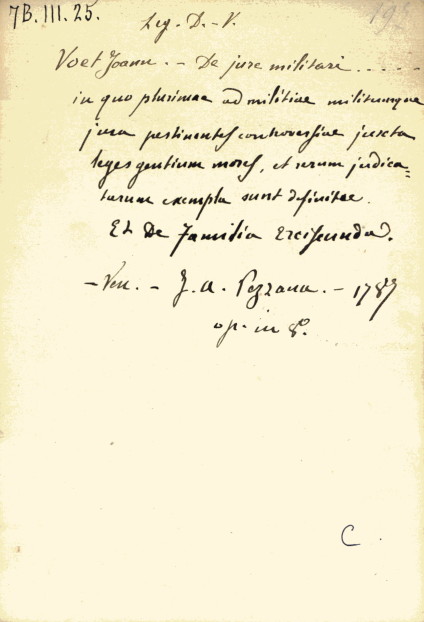 7B.III.25.
Leg. D. - V.
Voet Joann. - De jure militari . . . . .
in quo plurimae ad militiae militumque
jura pertinentes controversiae juxta
leges gentium mores, et rerum judica=
tarum exempla sunt definitae.
Et De Familia Erciscunda.
- Ven. - J. A. Pezzana. - 1787
op. in 8º.
C.